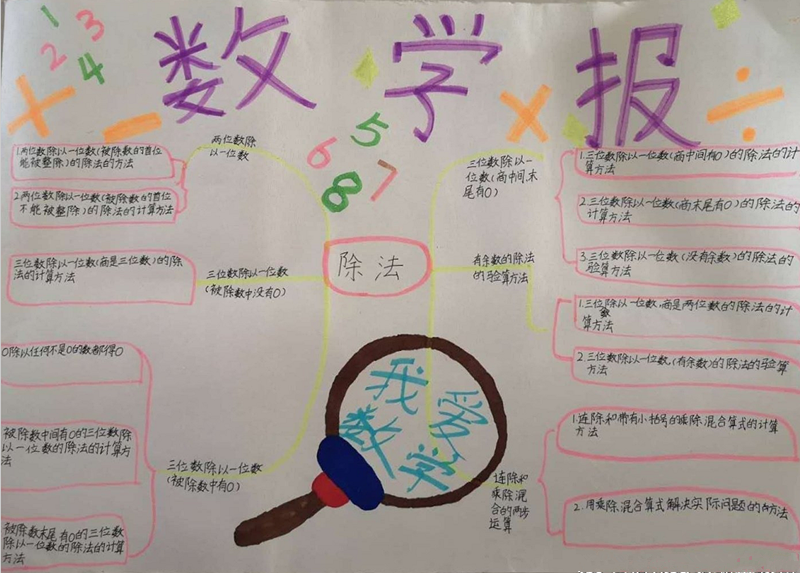 数学报
1 2 3 4
5 6 7 8
除法
两位数除
以一位数
1.两位数除以一位数(被除数的首位
能被整除)的除法的方法
2.两位数除以一位数(被除数的首位
不能被整除)的除法的计算方法
三位数除以一位数
(被除数中没有0)
三位数除以一位数(商是三位数)的除
法的计算方法
三位数除以一位数
(被除数中有0)
0除以任何不是0的数都得0
被除数中间有0的三位数除
以一位数的除法的计算方
法
被除数末尾有0的三位数
除以一位数的除法的计算
方法
三位数除以一
位数(商中间、末
尾有0)
1.三位数除以一位数(商中间有0)的除法的计
算方法
2.三位数除以一位数(商末尾有0)的除法的
计算方法
3.三位数除以一位数(没有余数)的除法的
验算方法
有余数的除法
的验算方法
1.三位除以一位数,商是两位数的除法的计
数
算方法
2.三位数除以一位数,(有余数)的除法的验算
方法
连除和
乘除混
合的两步
运算
1.连除和带有小括号的乘除混合算式的计算
方法
2.用乘除混合算式解决实际问题的方法
我爱
数学